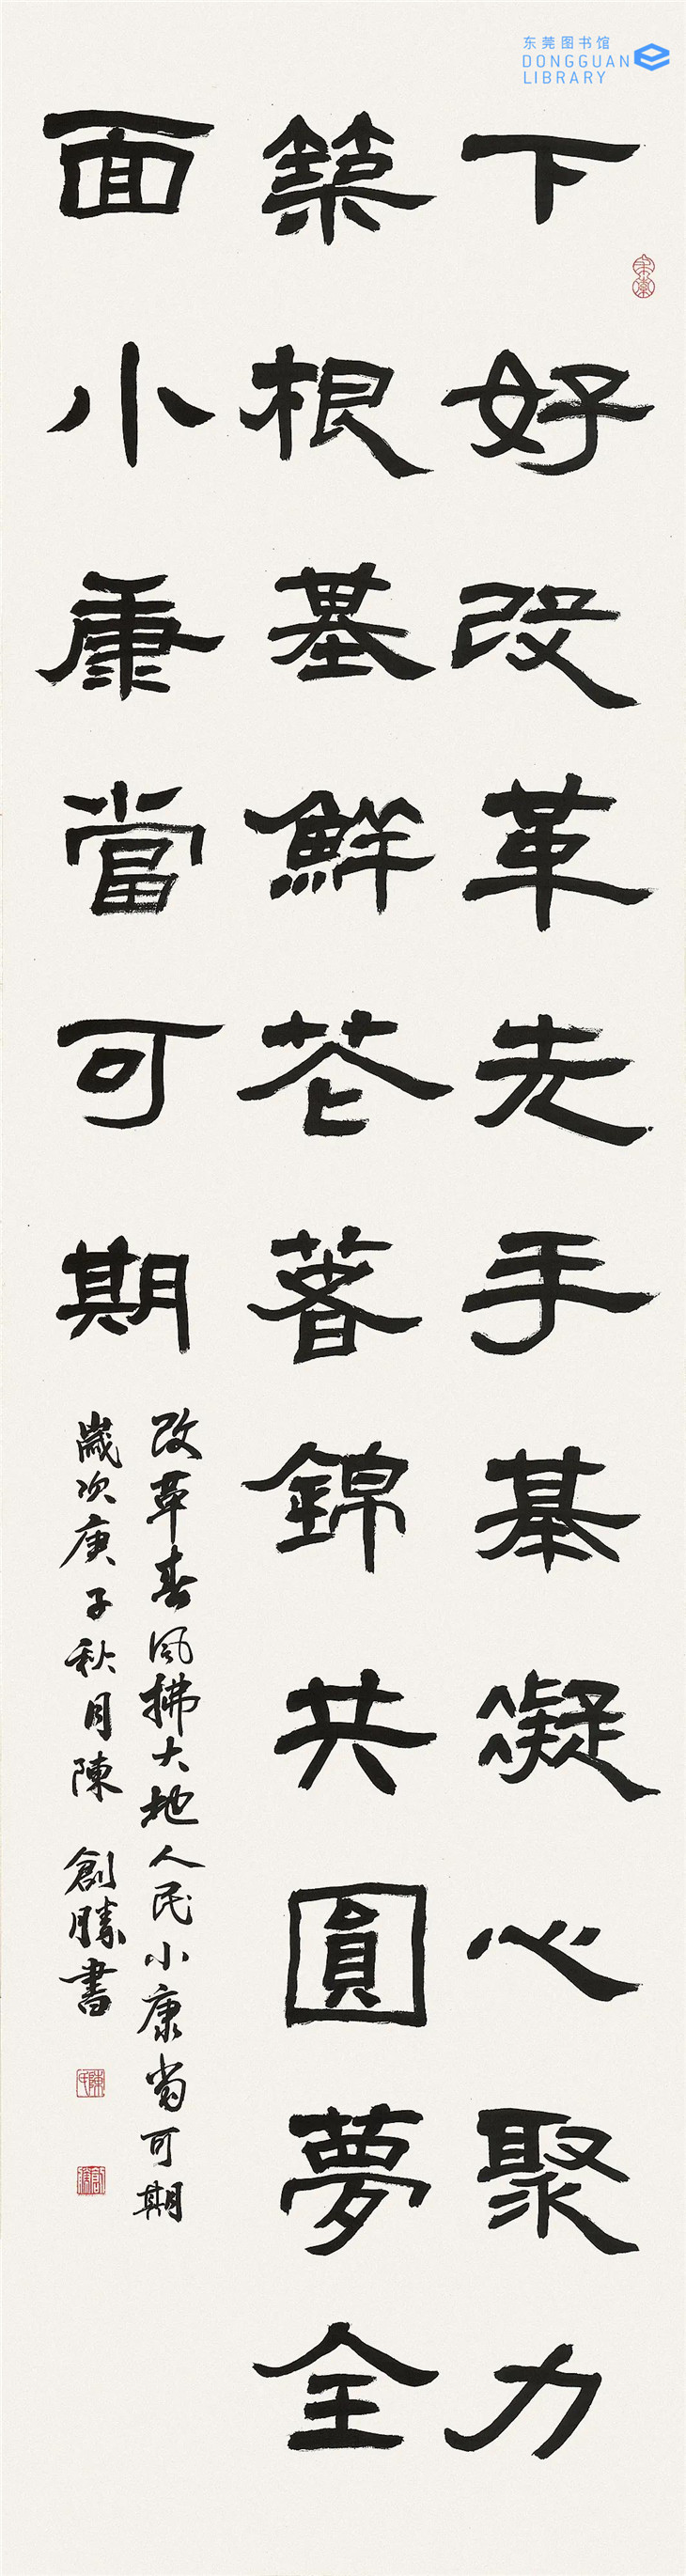 东莞图书馆
DONGGUAN
LIBRARY
下好改革先手棊凝心聚力
築根基鮮花著錦共圓夢全
面小康當可期
改革春風拂大地人民小康當可期
歲次庚子秋月陳創勝書